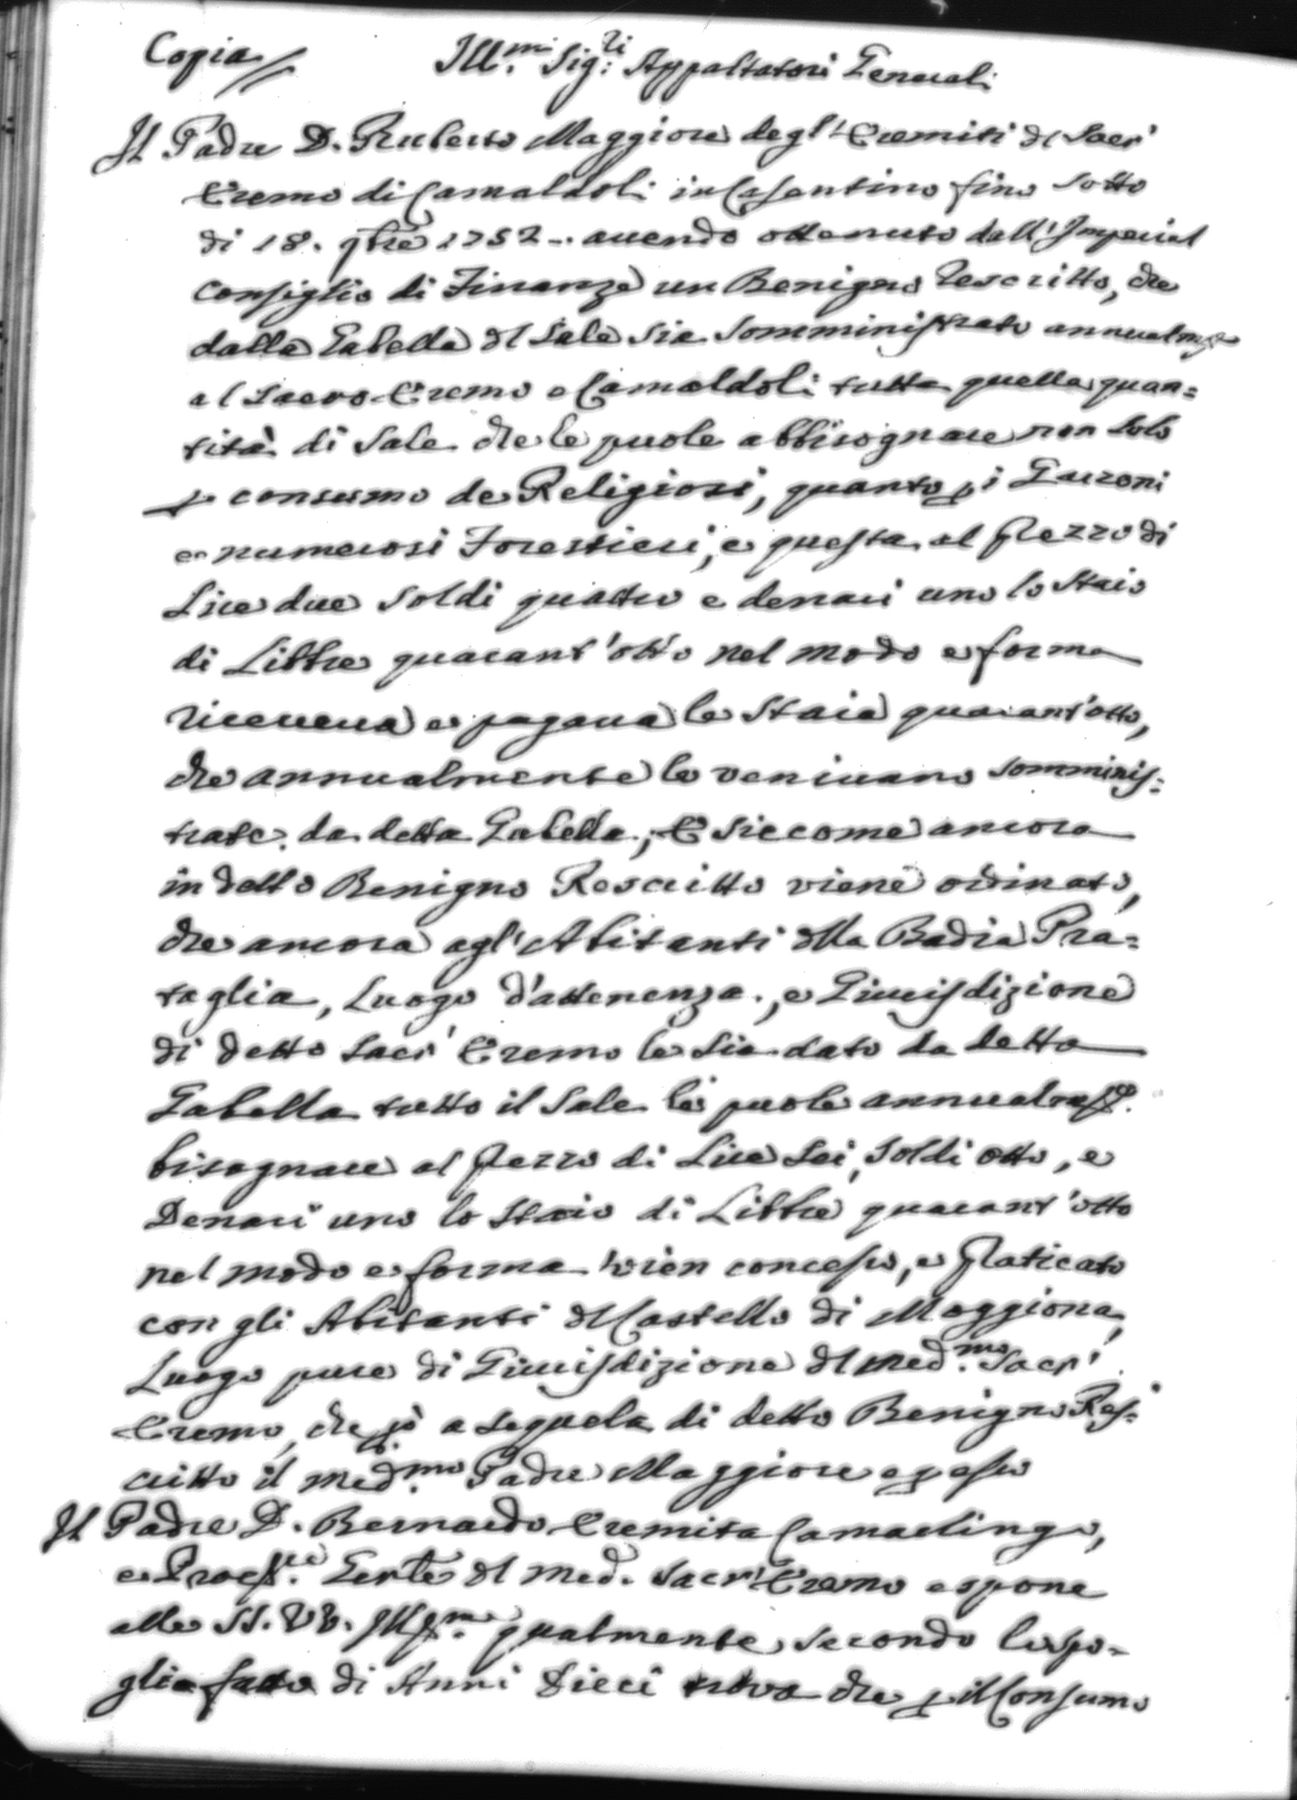 Copia
Ill.mi Sig:ri Appaltatori Generali
Il Padre D. Ruberto Maggiore degl'Eremiti dl Sacr'
Eremo di Camaldoli in Casentino fino sotto
di 18. 9bre 1752 .. avendo ottenuto dall'Imperial
Consiglio di Finanze un Benigno Rescritto, che
dalla Gabella dl Sale sia somministrato annualmte
al Sacro Eremo e Camaldoli tutta quella quan=
tità di Sale che le puole abbisognare non solo
p consumo de Religiosi, quanto p i Garzoni
e numerosi Forestieri, e questa al Prezzo di
Lire due Soldi quattro e denari uno lo Staio
di Libbre quarant'otto nel modo e forma
riceveva e pagava le Staia quarant'otto,
che annualmente le venivano somminis=
trate da detta Gabella; E siccome ancora
in detto Benigno Rescritto viene ordinato,
che ancora agl'Abitanti dlla Badia Pra=
taglia, Luogo d'attenenza, e Giurisdizione
di detto Sacr'Eremo le sia dato da detta
Gabella tutto il Sale li puole annualmte.
bisognare al Prezzo di Lire Sei, Soldi otto, e
Denari uno lo Staio di Libbre quarant'otto
nel modo e forma vien concesso, e Praticato
con gli Abitanti dl Castello di Moggiona,
Luogo pure di Giurisdizione dl med.mo Sacr'
Eremo, che pò a sequela di detto Benigno Res=
critto il med.mo Padre Maggiore e p esso
Il Padre D. Bernardo Eremita Camarlingo,
e Procre. Gente dl med. Sacr'Eremo espone
alle SS. VV. Illme. qualmente secondo lo spo=
glio fatto di Anni Dieci trova che p il Consumo